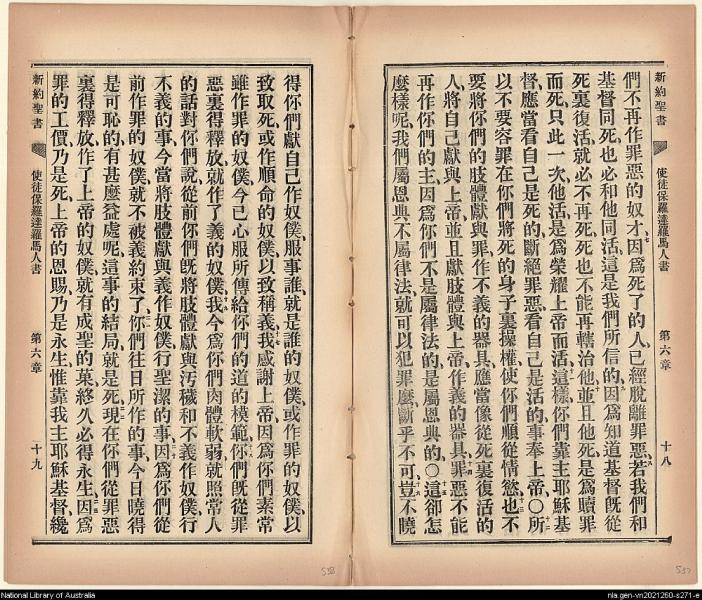 新約聖書 使徒保羅達羅馬人書 第六章 十八
們不再作罪惡的奴才、七因爲死了的人、已經脫離罪惡、八若我們和
基督同死、也必和他同活、這是我們所信的、九因爲知道基督既從
死裏復活、就必不再死、死也不能再轄治他、十並且他死、是爲贖罪
而死、只此一次、他活、是爲榮耀上帝而活、十一這樣、你們靠主耶穌基
督、應當看自己是死的、斷絕罪惡、看自己是活的、事奉上帝、〇十二所
以不要容罪在你們將死的身子裏操權、使你們順從情慾、十三也不
要將你們的肢體獻與罪、作不義的器具、應當像從死裏復活的
人、將自己獻與上帝、並且獻肢體與上帝、作義的器具、十四罪惡不能
再作你們的主、因爲你們不是屬律法的、是屬恩典的、〇十五這卻怎
麼樣呢、我們屬恩典、不屬律法、就可以犯罪麼、斷乎不可、十六豈不曉
得你們獻自己作奴僕、服事誰、就是誰的奴僕、或作罪的奴僕、以
致取死、或作順命的奴僕、以致稱義、十七我感謝上帝、因爲你們素常
雖作罪的奴僕、今已心服所傳給你們的道的模範、十八你們既從罪
惡裏得釋放、就作了義的奴僕、十九我今爲你們肉體軟弱、就照常人
的話對你們說、從前你們既將肢體獻與汚穢和不義作奴僕、行
不義的事、今當將肢體獻與義作奴僕、行聖潔的事、二十因爲你們從
前作罪的奴僕、就不被義約束了、二一你們往日所作的事、今日曉得
是可恥的、有甚麼益處呢、這事的結局、就是死、二二現在你們從罪惡
裏得釋放、作了上帝的奴僕、就有成聖的菓、終久必得永生、二三因爲
罪的工價乃是死、上帝的恩賜、乃是永生、惟靠我主耶穌基督纔
新約聖書 使徒保羅達羅馬人書 第六章 十九
538
537
National Library of Australia
nla.gen-vn2021260-s271-e